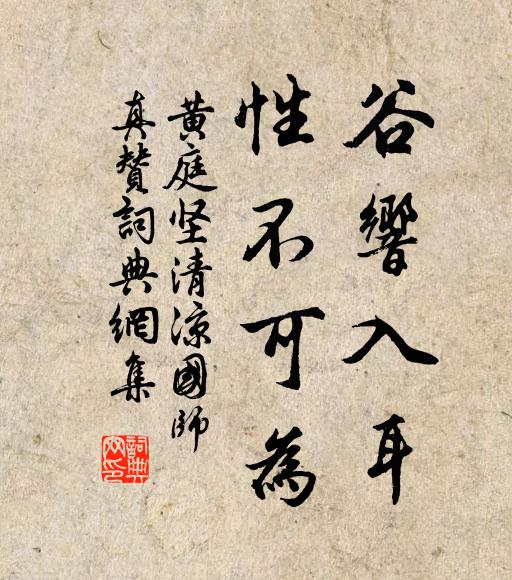 谷響入耳
性不可為
黄庭坚清涼國師
真贊詞典網集
詞典
网印